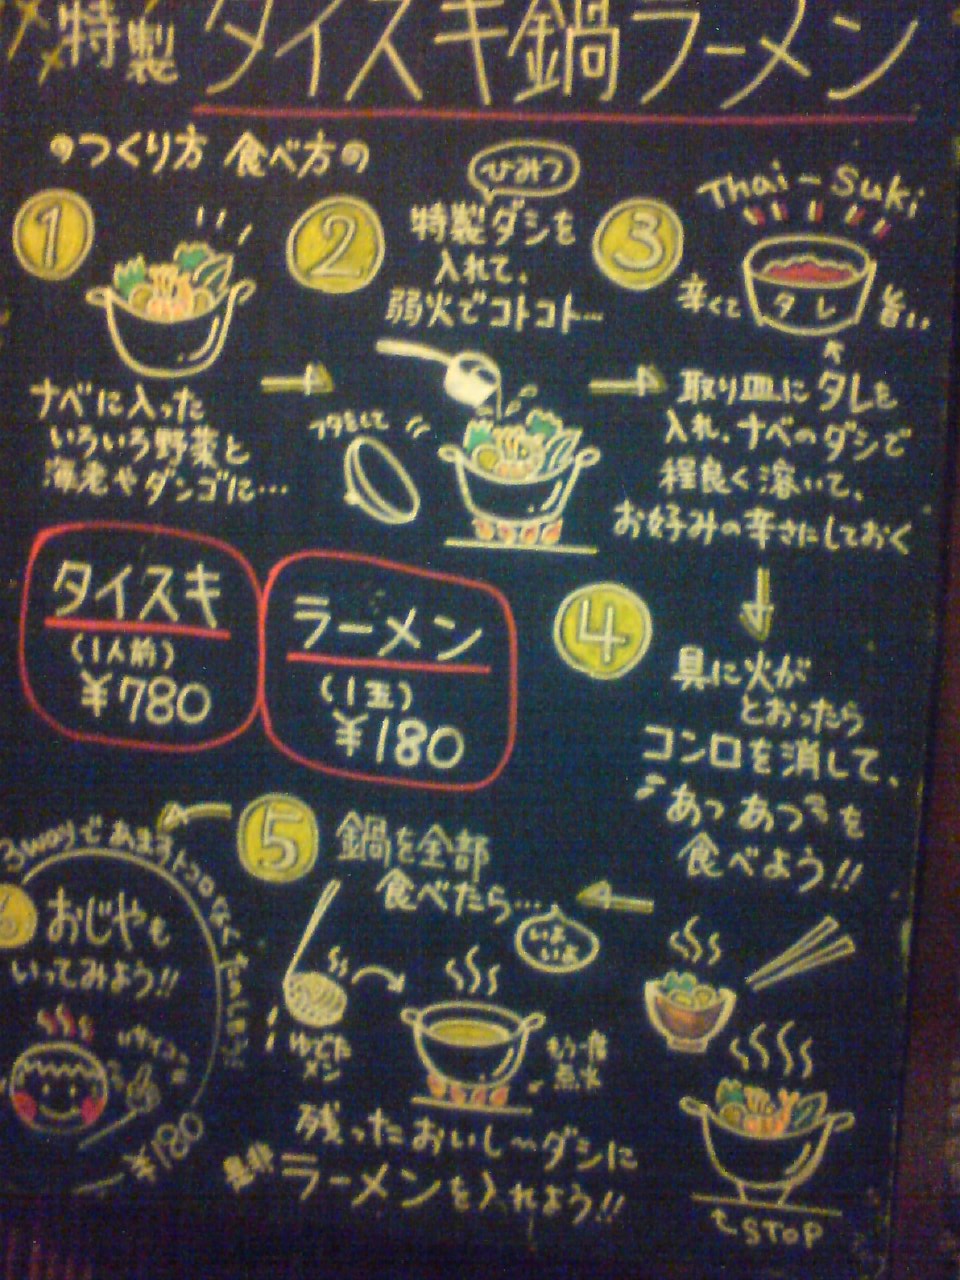 特製 タイスキ鍋ラーメン
のつくり方 食べ方の
1
ナベに入った
いろいろ野菜と
海老やダンゴに…
2
ひみつ
特製ダシを
入れて、
弱火でコトコト…
フタをして
3
Thai-Suki
辛くて
タレ
旨い
取り皿にタレを
入れ、ナベのダシで
程良く溶いて、
お好みの辛さにしておく
タイスキ
(1人前)
¥780
ラーメン
(1玉)
¥180
4
具に火が
とおったら
コンロを消して、
あつあつを
食べよう!!
STOP
5
鍋を全部
食べたら…
いよいよ
ゆでた
メン
もう一度
点火
残ったおいし〜ダシに
是非ラーメンを入れよう!!
3wayであますトコロなく
6
おじやも
いってみよう!!
¥180